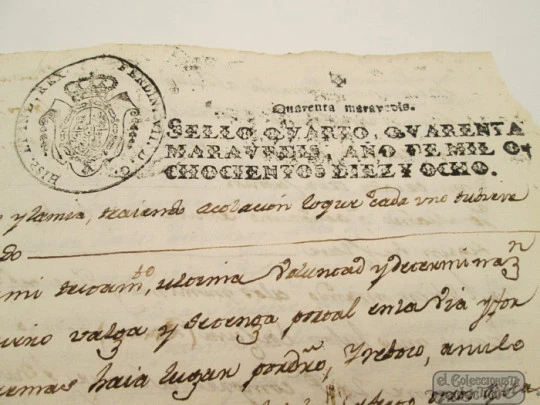 FERDIN. VII. D. G. HISP. ET IND. REX
Quarenta maravedis.
SELLO QVARTO, QVARENTA
MARAVEDIS, AÑO DE MIL O-
CHOCIENTOS DIEZ Y OCHO.
y la mia, traiendo acolacion loque cada uno tubiere
mi testam.to, ultima voluntad y determinaz.n
valga y setenga portal enla via y for
haia lugar pordro, y reboco, anulo
el Coleccionista